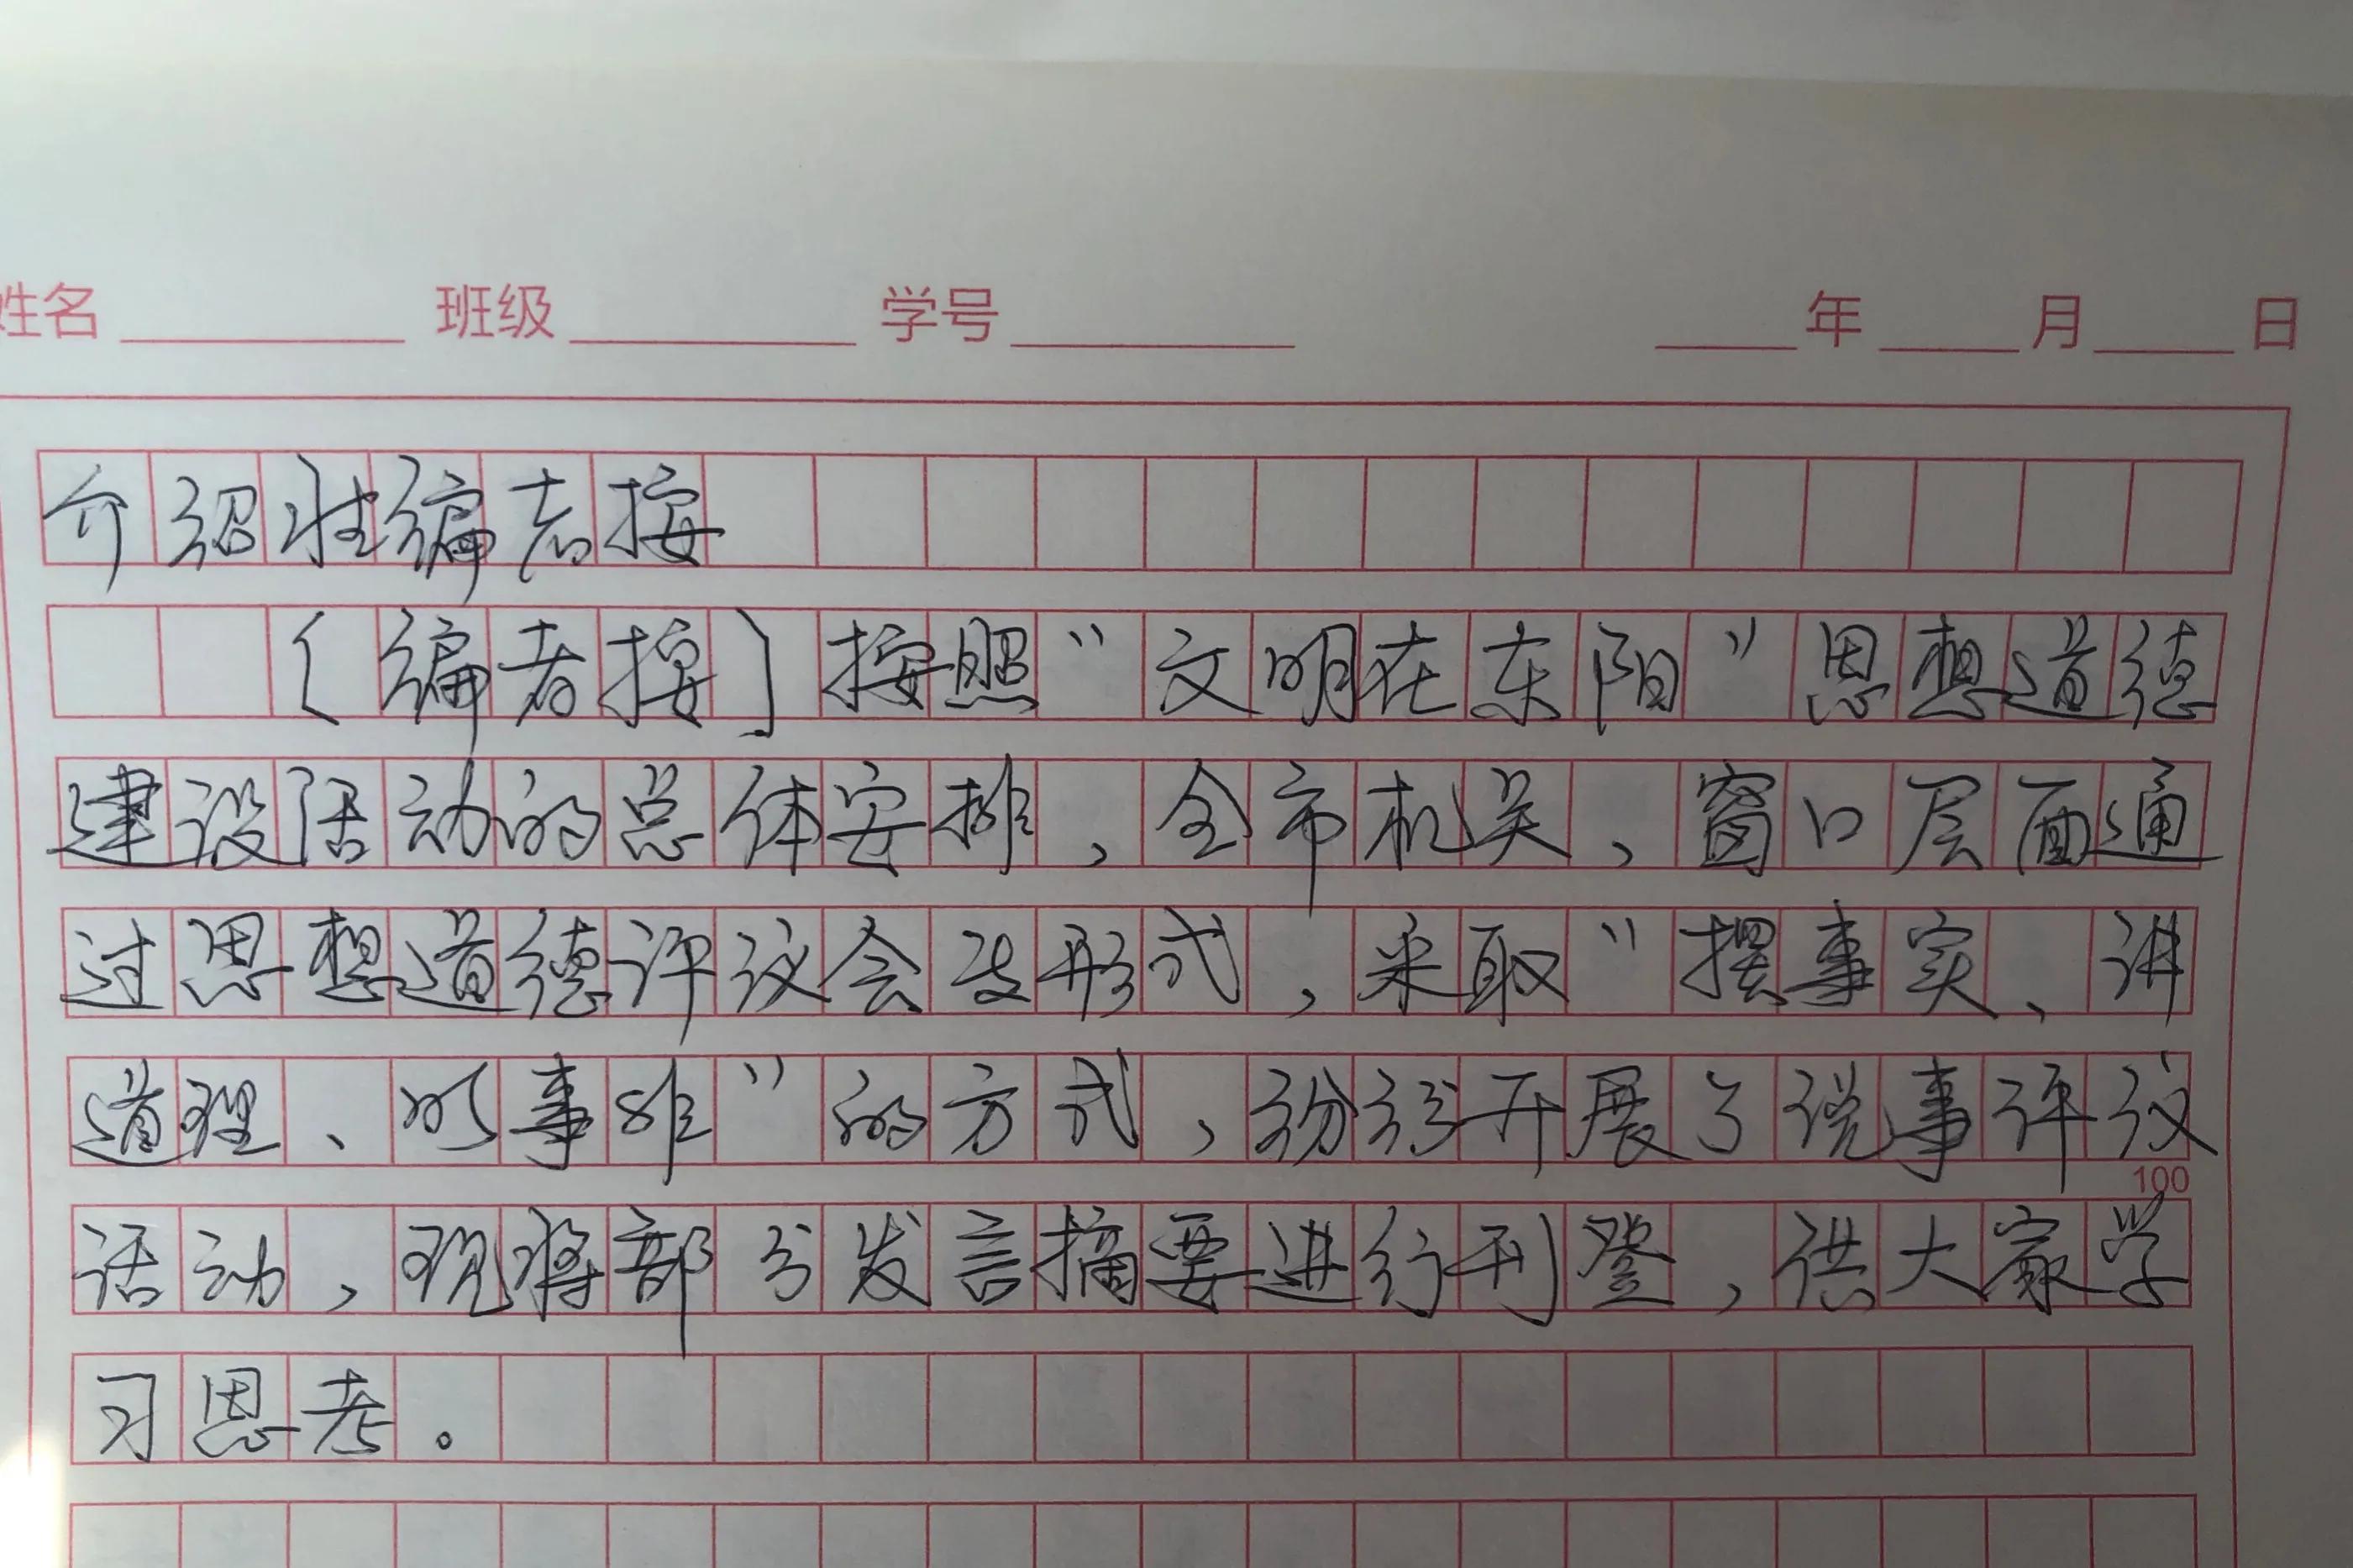 姓名 班级 学号 年 月 日
介绍性编者按
〔编者按〕按照“文明在东阳”思想道德
建设活动的总体安排,全市机关,窗口层面通
过思想道德评议会议形式,采取“摆事实、讲
道理、以事非”的方式,纷纷开展了说事评议
100
活动,现将部分发言摘要进行刊登,供大家学
习思考。